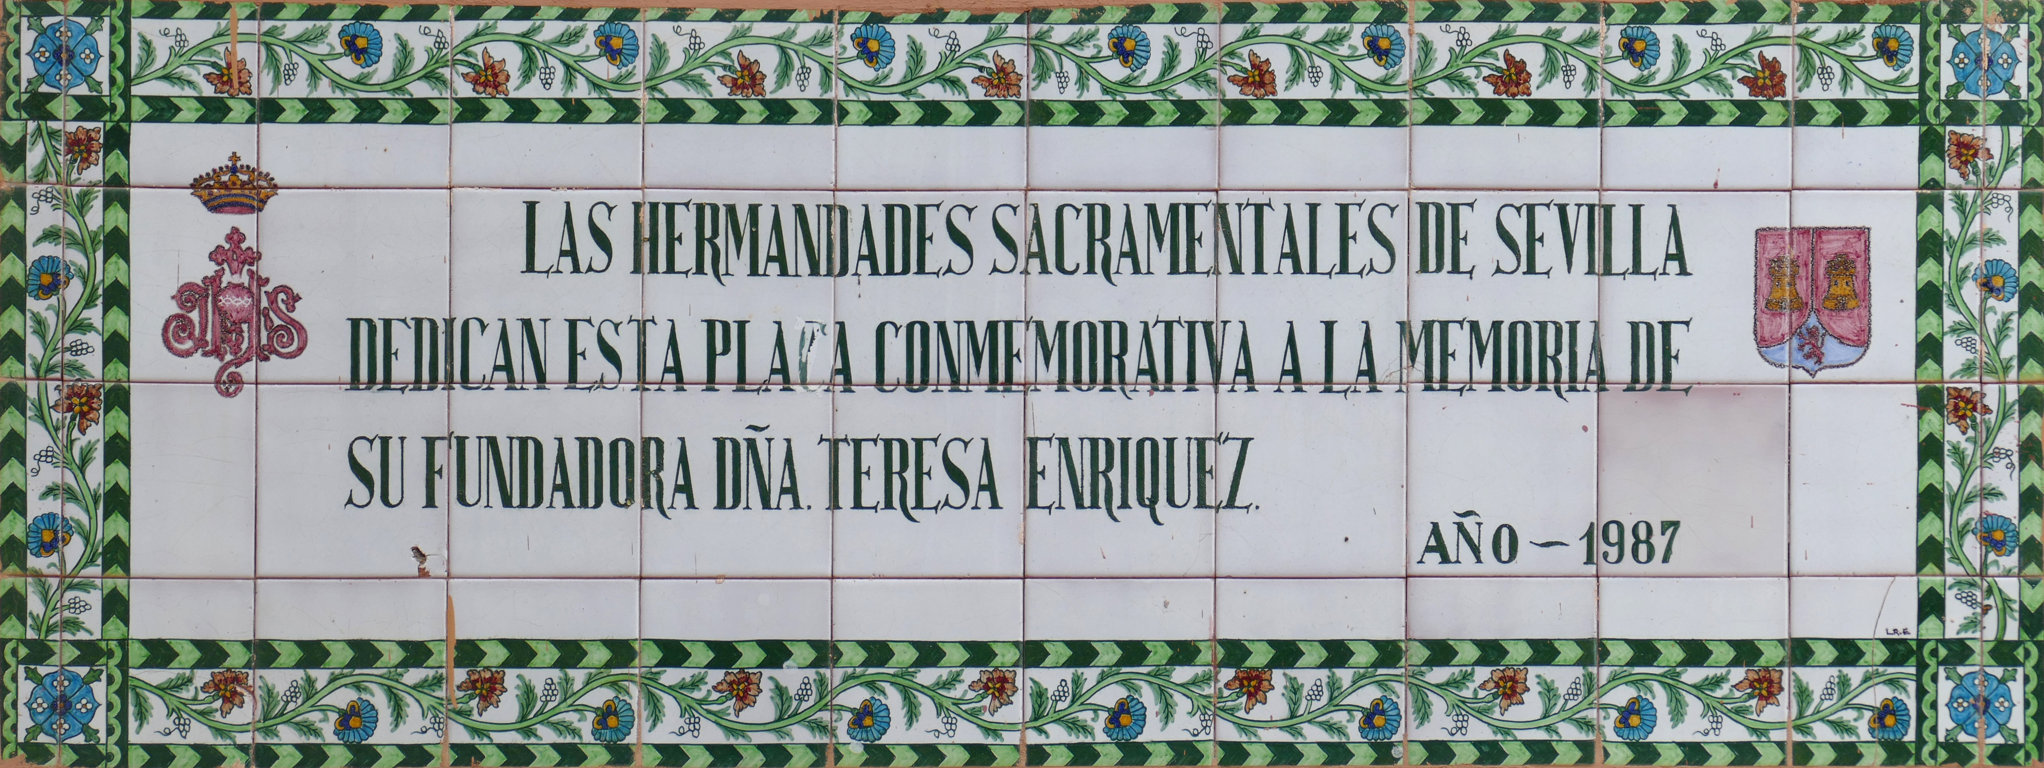 LAS HERMANDADES SACRAMENTALES DE SEVILLA
DEDICAN ESTA PLACA CONMEMORATIVA A LA MEMORIA DE
SU FUNDADORA DÑA. TERESA ENRIQUEZ.
AÑO - 1987
JHS
L.R.E.